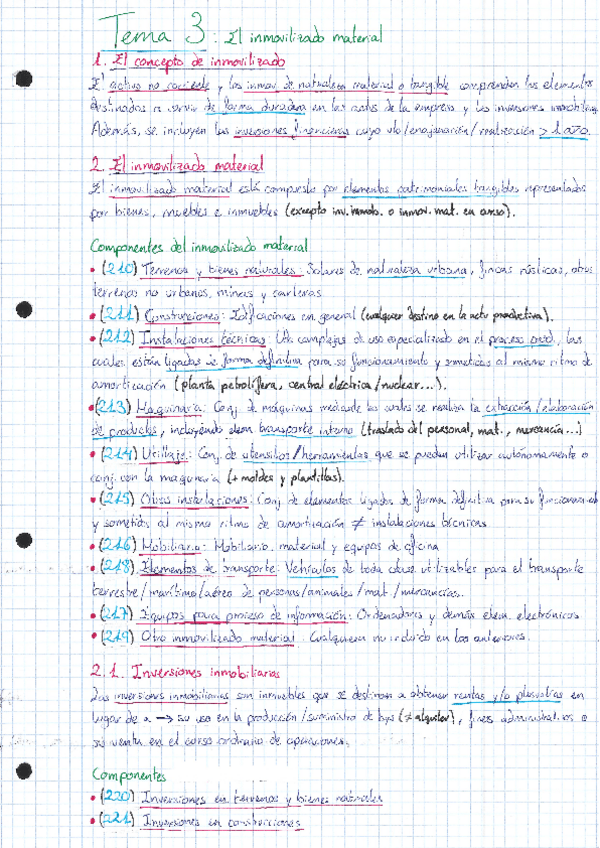 Tema 3: El inmovilizado material
1. El concepto de inmovilizado
El activo no corriente y los inmov. de naturaleza material o tangible comprenden los elementos
destinados a servir de forma duradera en las de la empresa y las inversiones inmobiliarias.
Además, se incluyen las inversiones financieras cuyo vto/enajenación/realización > 1 año.
2. El inmovilizado material
El inmovilizado material está compuesto por elementos patrimoniales tangibles representados
por bienes, muebles e inmuebles (excepto inv. inmob. o inmov. mat. en curso).
Componentes del inmovilizado material
• (210) Terrenos y bienes naturales: Solares de naturaleza urbana, fincas rústicas, otros
terrenos no urbanos, minas y canteras
• (211) Construcciones: Edificaciones en general (cualquier destino en la actv productiva).
• (212) Instalaciones técnicas: Uds complejas de uso especializado en el proceso prod., las
cuales están ligadas de forma definitiva para su funcionamiento y sometidas al mismo ritmo de
amortización (planta petrolífera, central eléctrica/nuclear...).
• (213) Maquinaria: Conj. de máquinas mediante las cuales se realiza la extracción/elaboración
de productos, incluyendo elem transporte interno (traslado del personal, mat., mercancía...)
• (214) Utillaje: Conj. de utensilios/herramientas que se pueden utilizar autónomamente o
conj. con la maquinaria (+ moldes y plantillas).
• (215) Otras instalaciones: Conj. de elementos ligados de forma definitiva para su
y sometidos al mismo ritmo de amortización ≠ instalaciones técnicas
• (216) Mobiliario: Mobiliario, material y equipos de oficina
• (218) Elementos de transporte: Vehículos de toda clase utilizables para el transporte
terrestre/marítimo/aéreo de personas/animales/mat./mercancías.
• (217) Equipos para proceso de información: Ordenadores y demás elem. electrónicos
• (219) Otro inmovilizado material: Cualquiera no incluido en los anteriores.
2.1. Inversiones inmobiliarias
Las inversiones inmobiliarias son inmuebles que se destinan a obtener rentas y/o plusvalías en
lugar de a → su uso en la producción/suministro de bys (≠ alquiler), fines administrativos o
su venta en el curso ordinario de operaciones.
Componentes
• (220) Inversiones en terrenos y bienes naturales
• (221) Inversiones en construcciones